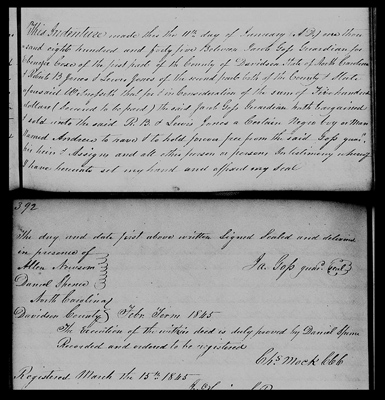 This Indenture made this the 11th day of January A.D. one thou
sand eight hundred and forty five Between Jacob Goss Guardian for
Goss of the first part of the County of Davidson State of North Carolina
& Robert B Jones & Lewis Jones of the second part both of the County & State
aforesaid Witnesseth that for & in Consideration of the sum of Five hundred
dollars (Secured to be paid) the said Jacob Goss Guardian hath bargained
& sold unto the said R. B. & Lewis Jones a Certain Negro boy or Man
Named Anderson to have & to hold forever free from the said Goss guar.
his heirs & Assigns and all other person or persons In testimony whereof
I have hereunto set my hand and affixed my seal
392
The day and date first above written Signed Sealed and delivered
in presence of
Allen Newsom
Ja. Goss guar. Seal
Daniel
North Carolina
Davidson County Febr. Term 1845
The Execution of the within deed is duly proved by Daniel
Recorded and ordered to be registered
Chs. Mock CCC
Registered March the 15th 1845